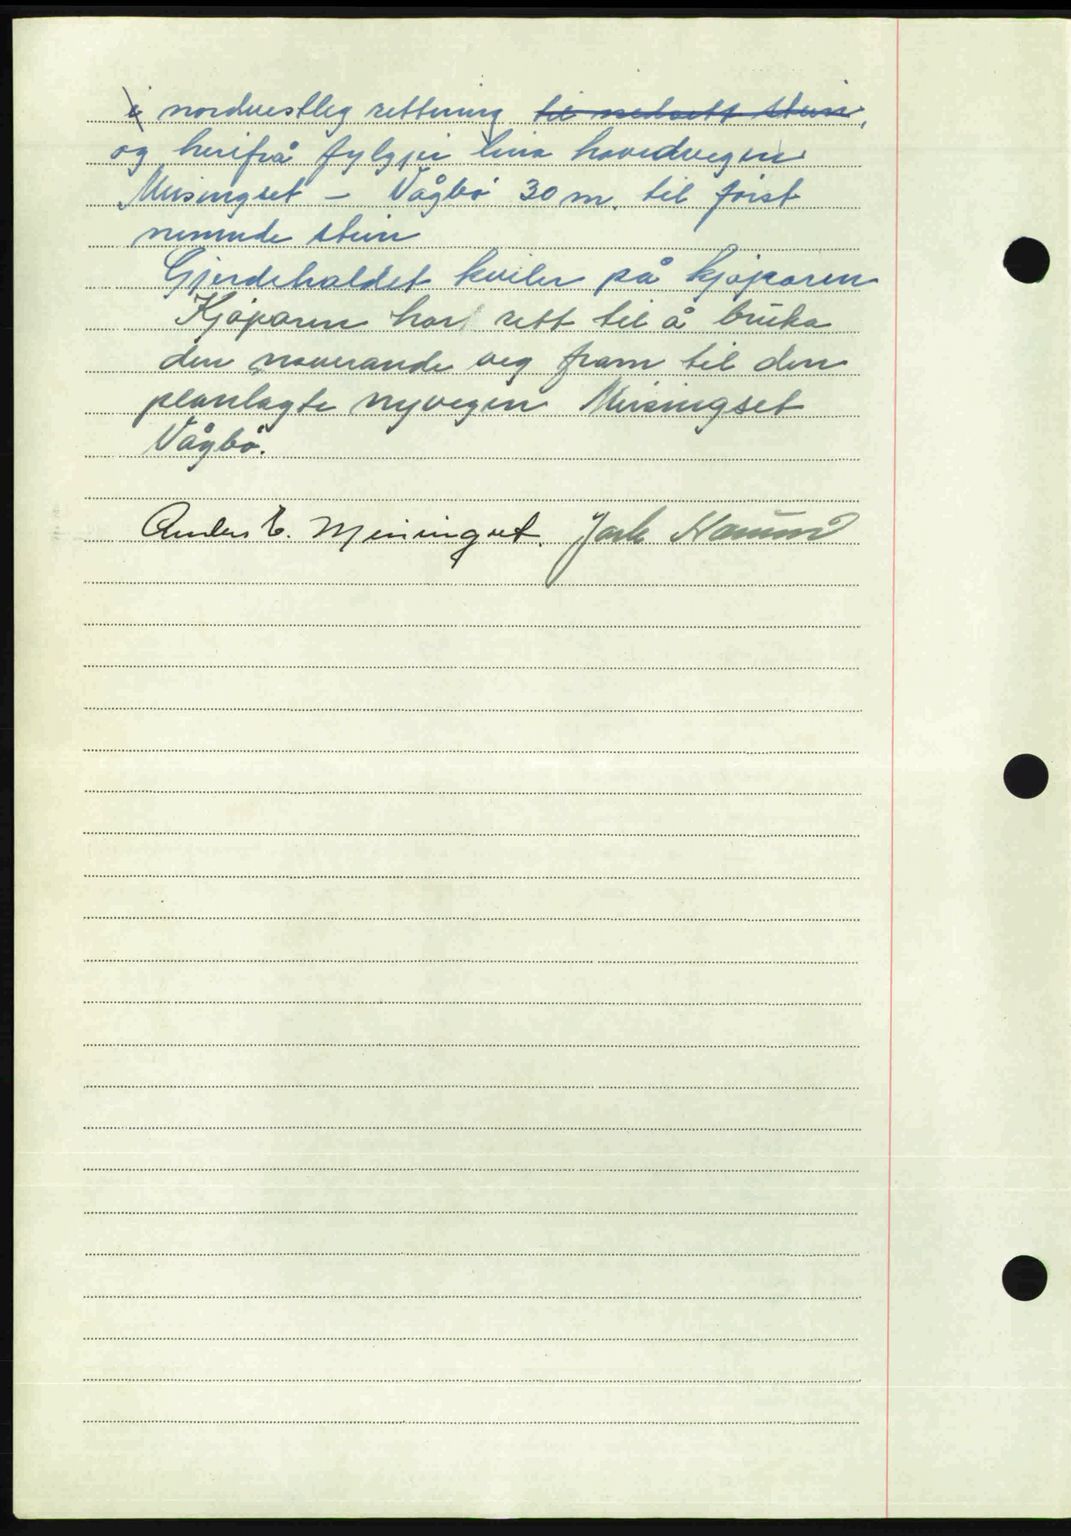 i nordvestleg rettning til nedsett stein,
og herifrå fylgjer lina hovedvegen
Meisingset – Vågbö 30 m. til först
nemnde stein
Gjerdehaldet kviler på kjöparen
Kjöparen har rett til å bruka
den noverande veg fram til den
planlagte nyvegen Meisingset
Vågbö.
Anders E. Meisingset. Jarle